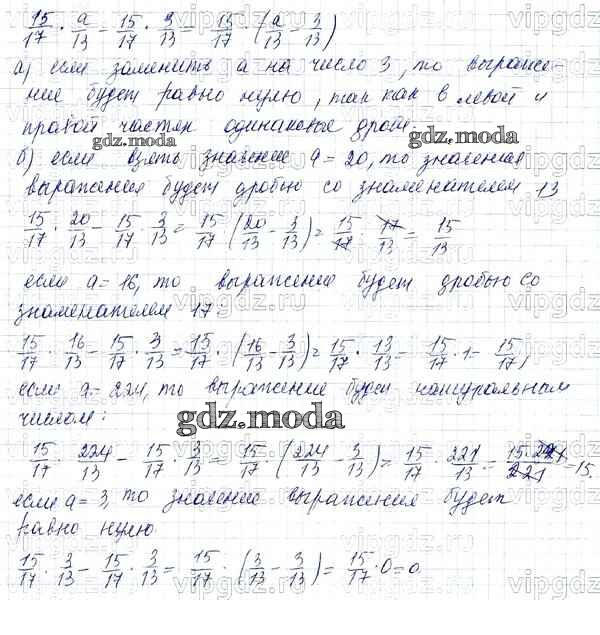 15/17 · a/13 - 15/17 · 3/13 = 15/17 · (a/13 - 3/13)
а) если заменить а на число 3, то выраже-
ние будет равно нулю, так как в левой и
правой частях одинаковое дроби
gdz.moda gdz.moda
б) если взять значение a = 20, то значение
выражения будет дробью со знаменателем 13
15/17 · 20/13 - 15/17 · 3/13 = 15/17 (20/13 - 3/13) = 15/17 · 17/13 = 15/13
если a = 16, то выражение будет дробью со
знаменателем 17:
15/17 · 16/13 - 15/17 · 3/13 = 15/17 · (16/13 - 3/13) = 15/17 · 13/13 = 15/17 · 1 = 15/17,
если a = 224, то выражение будет натуральным
числом:
gdz.moda gdz.moda
15/17 · 224/13 - 15/17 · 3/13 = 15/17 · (224/13 - 3/13) = 15/17 · 221/13 = 15·221/221 = 15.
если a = 3, то значение выражения будет
равно нулю
15/17 · 3/13 - 15/17 · 3/13 = 15/17 · (3/13 - 3/13) = 15/17 · 0 = 0
vipgdz.ru